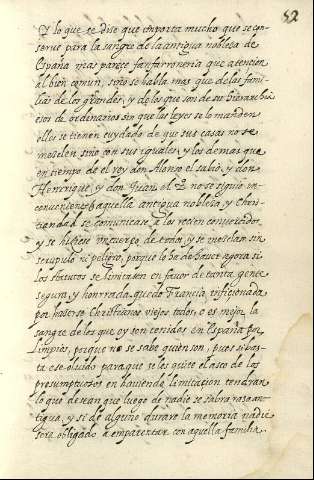 52
Y lo que se dize que importa mucho que se con
serue para la sangre de la antigua nobleza de
España mas parece fanfarroneria que atencion
al bien comun, sino se habla mas que de las fami
lias de los grandes, y de los que son de su hierarchia
de ordinarios sin que las leyes se lo manden
ellos se tienen cuydado de que sus casas no se
mezclen sino con sus iguales, y los demas que
en tiempo de el rey don Alonso el sabio, y don
Henrrique, y don Juan el 2.º no se siguio in
conueniente aquella antigua nobleza, y Chris
tiandad se comunicase a los recien conuertidos,
y se hiziese un cuerpo de todos, y se mezclasen sin
escrupulo ni peligro, porque lo ha de hauer agora si
los statutos se limitasen en fauor de tanta gente
segura, y honrrada, quedo Francia inficionada
por hazerse Christianos viejos todos, o es mejor la
sangre de los que oy son tenidos en España por
limpios, porque no se sabe quien son, pues si bas
ta ese oluido para que se les quite el asco de los
presumptuosos en hauiendo limitacion tendran
lo que desean que luego de nadie se sabra raza an
tigua, y si de alguno durare la memoria nadie
sera obligado a emparentar con aquella familia.